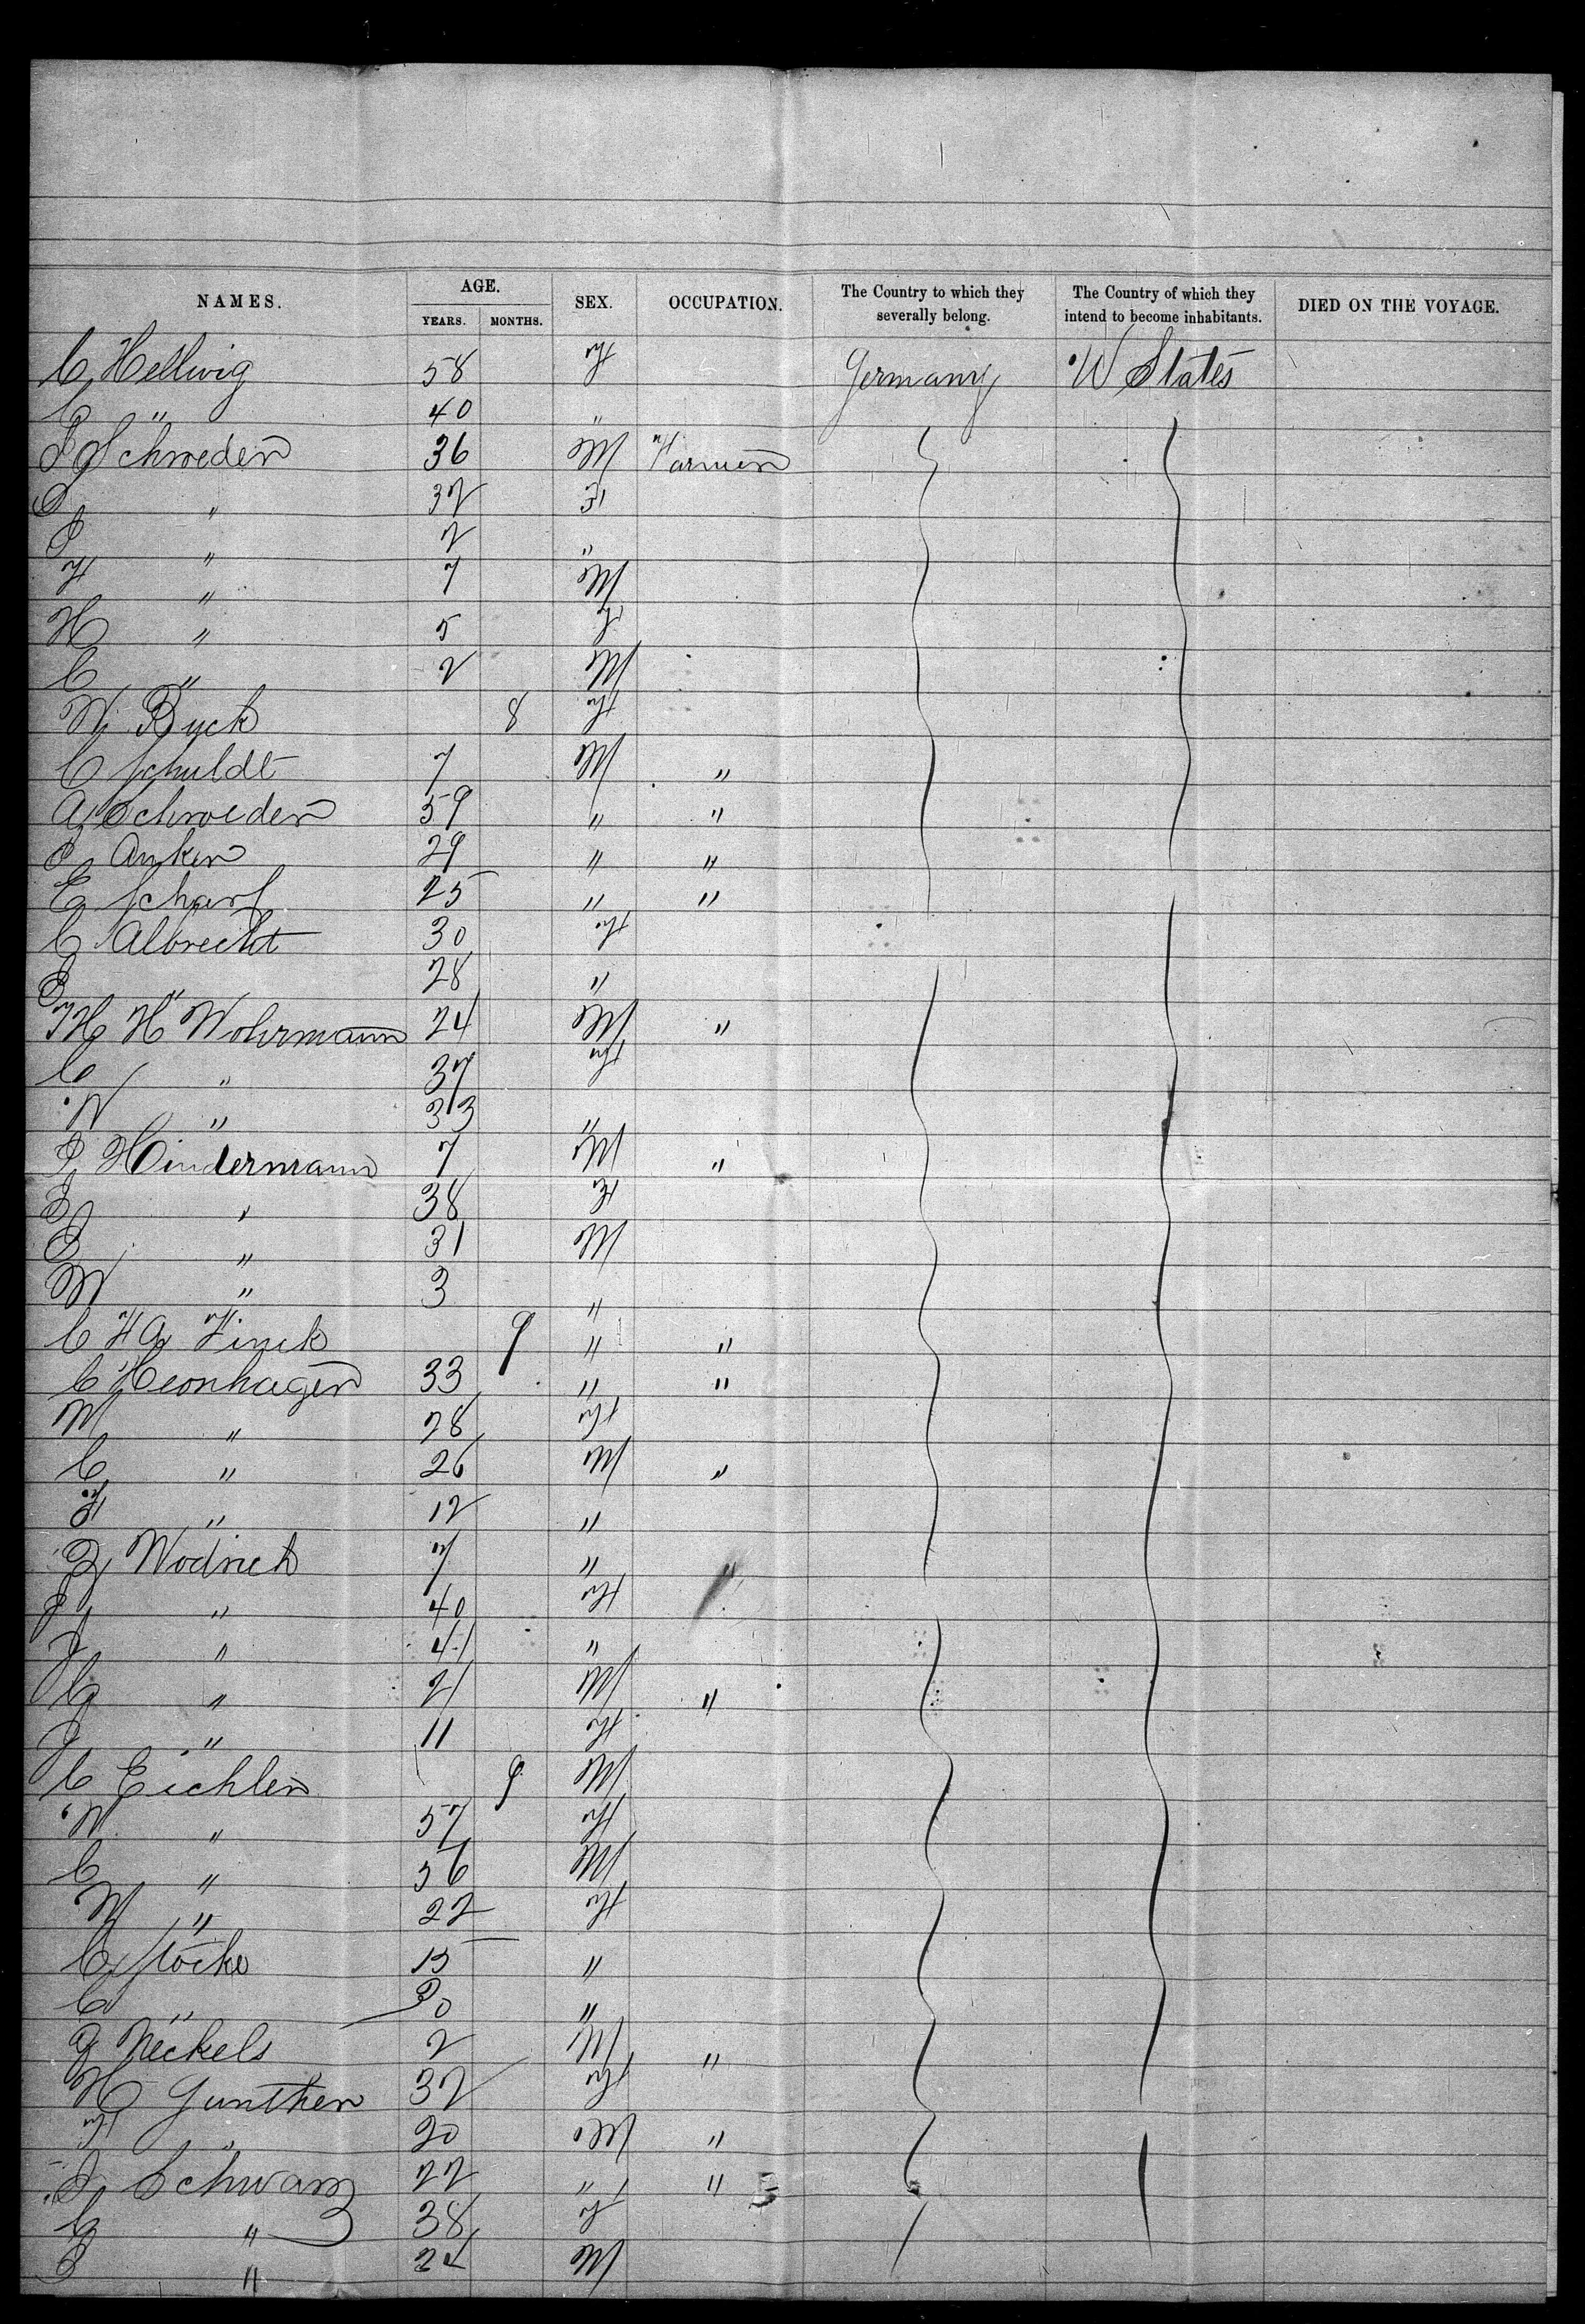 NAMES. AGE. SEX. OCCUPATION. The Country to which they severally belong. The Country of which they intend to become inhabitants. DIED ON THE VOYAGE.
YEARS. MONTHS.
C Hellwig 58 F Germany U States
C " 40 "
Schroeder 36 M Farmer
" 32 F
" 2 "
F " 7 M
H " 5 F
C " 2 M
W. Buck 8 F
C Schuldt 7 M "
A Schroeder 59 " "
J Anken 29 " "
E Scharf 25 " "
C Albrecht 30 F
" 28 "
H H Wohrmann 24 M "
C " 37 F
W " 33 "
J Hindermann 7 M "
" 38 F
" 31 M
W " 3 "
C F A Finck 9 " "
C Heonhagen 33 " "
M " 28 F
C " 26 M "
F " 12 "
Wodrich 7 " "
J " 40 F
J " 41 "
C " 21 M "
J " 11 F
C Eichler 9 M
W " 57 F
C " 56 M
M " 22 F
C Stocke 15 "
C " 30 "
J Neckels 2 M "
H Gunther 32 F
F " 20 M "
J Schwarz 22 " "
C " 38 F
" 24 M
"